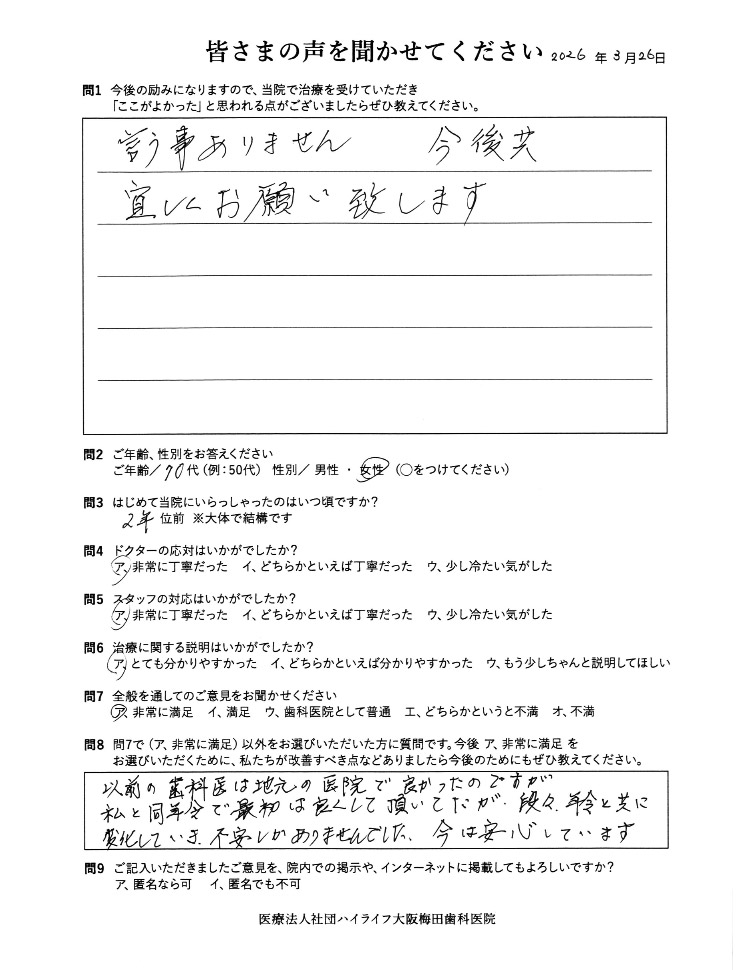 皆さまの声を聞かせてください 2026 年 3月26日
問1 今後の励みになりますので、当院で治療を受けていただき
「ここがよかった」と思われる点がございましたらぜひ教えてください。
言う事ありません 今後共
宜しくお願い致します
問2 ご年齢、性別をお答えください
ご年齢／70代（例：50代） 性別／ 男性 ・ 女性 （○をつけてください）
問3 はじめて当院にいらっしゃったのはいつ頃ですか？
2年 位前 ※大体で結構です
問4 ドクターの応対はいかがでしたか？
ア、非常に丁寧だった イ、どちらかといえば丁寧だった ウ、少し冷たい気がした
問5 スタッフの対応はいかがでしたか？
ア、非常に丁寧だった イ、どちらかといえば丁寧だった ウ、少し冷たい気がした
問6 治療に関する説明はいかがでしたか？
ア、とても分かりやすかった イ、どちらかといえば分かりやすかった ウ、もう少しちゃんと説明してほしい
問7 全般を通してのご意見をお聞かせください
ア、非常に満足 イ、満足 ウ、歯科医院として普通 エ、どちらかというと不満 オ、不満
問8 問7で（ア、非常に満足）以外をお選びいただいた方に質問です。今後 ア、非常に満足 を
お選びいただくために、私たちが改善すべき点などありましたら今後のためにもぜひ教えてください。
以前の歯科医は地元の医院で良かったのですが
私と同年令で最初は良くして頂いてたが、段々、年令と共に
変化していき、不安しかありませんでした、今は安心しています
問9 ご記入いただきましたご意見を、院内での掲示や、インターネットに掲載してもよろしいですか？
ア、匿名なら可 イ、匿名でも不可
医療法人社団ハイライフ大阪梅田歯科医院